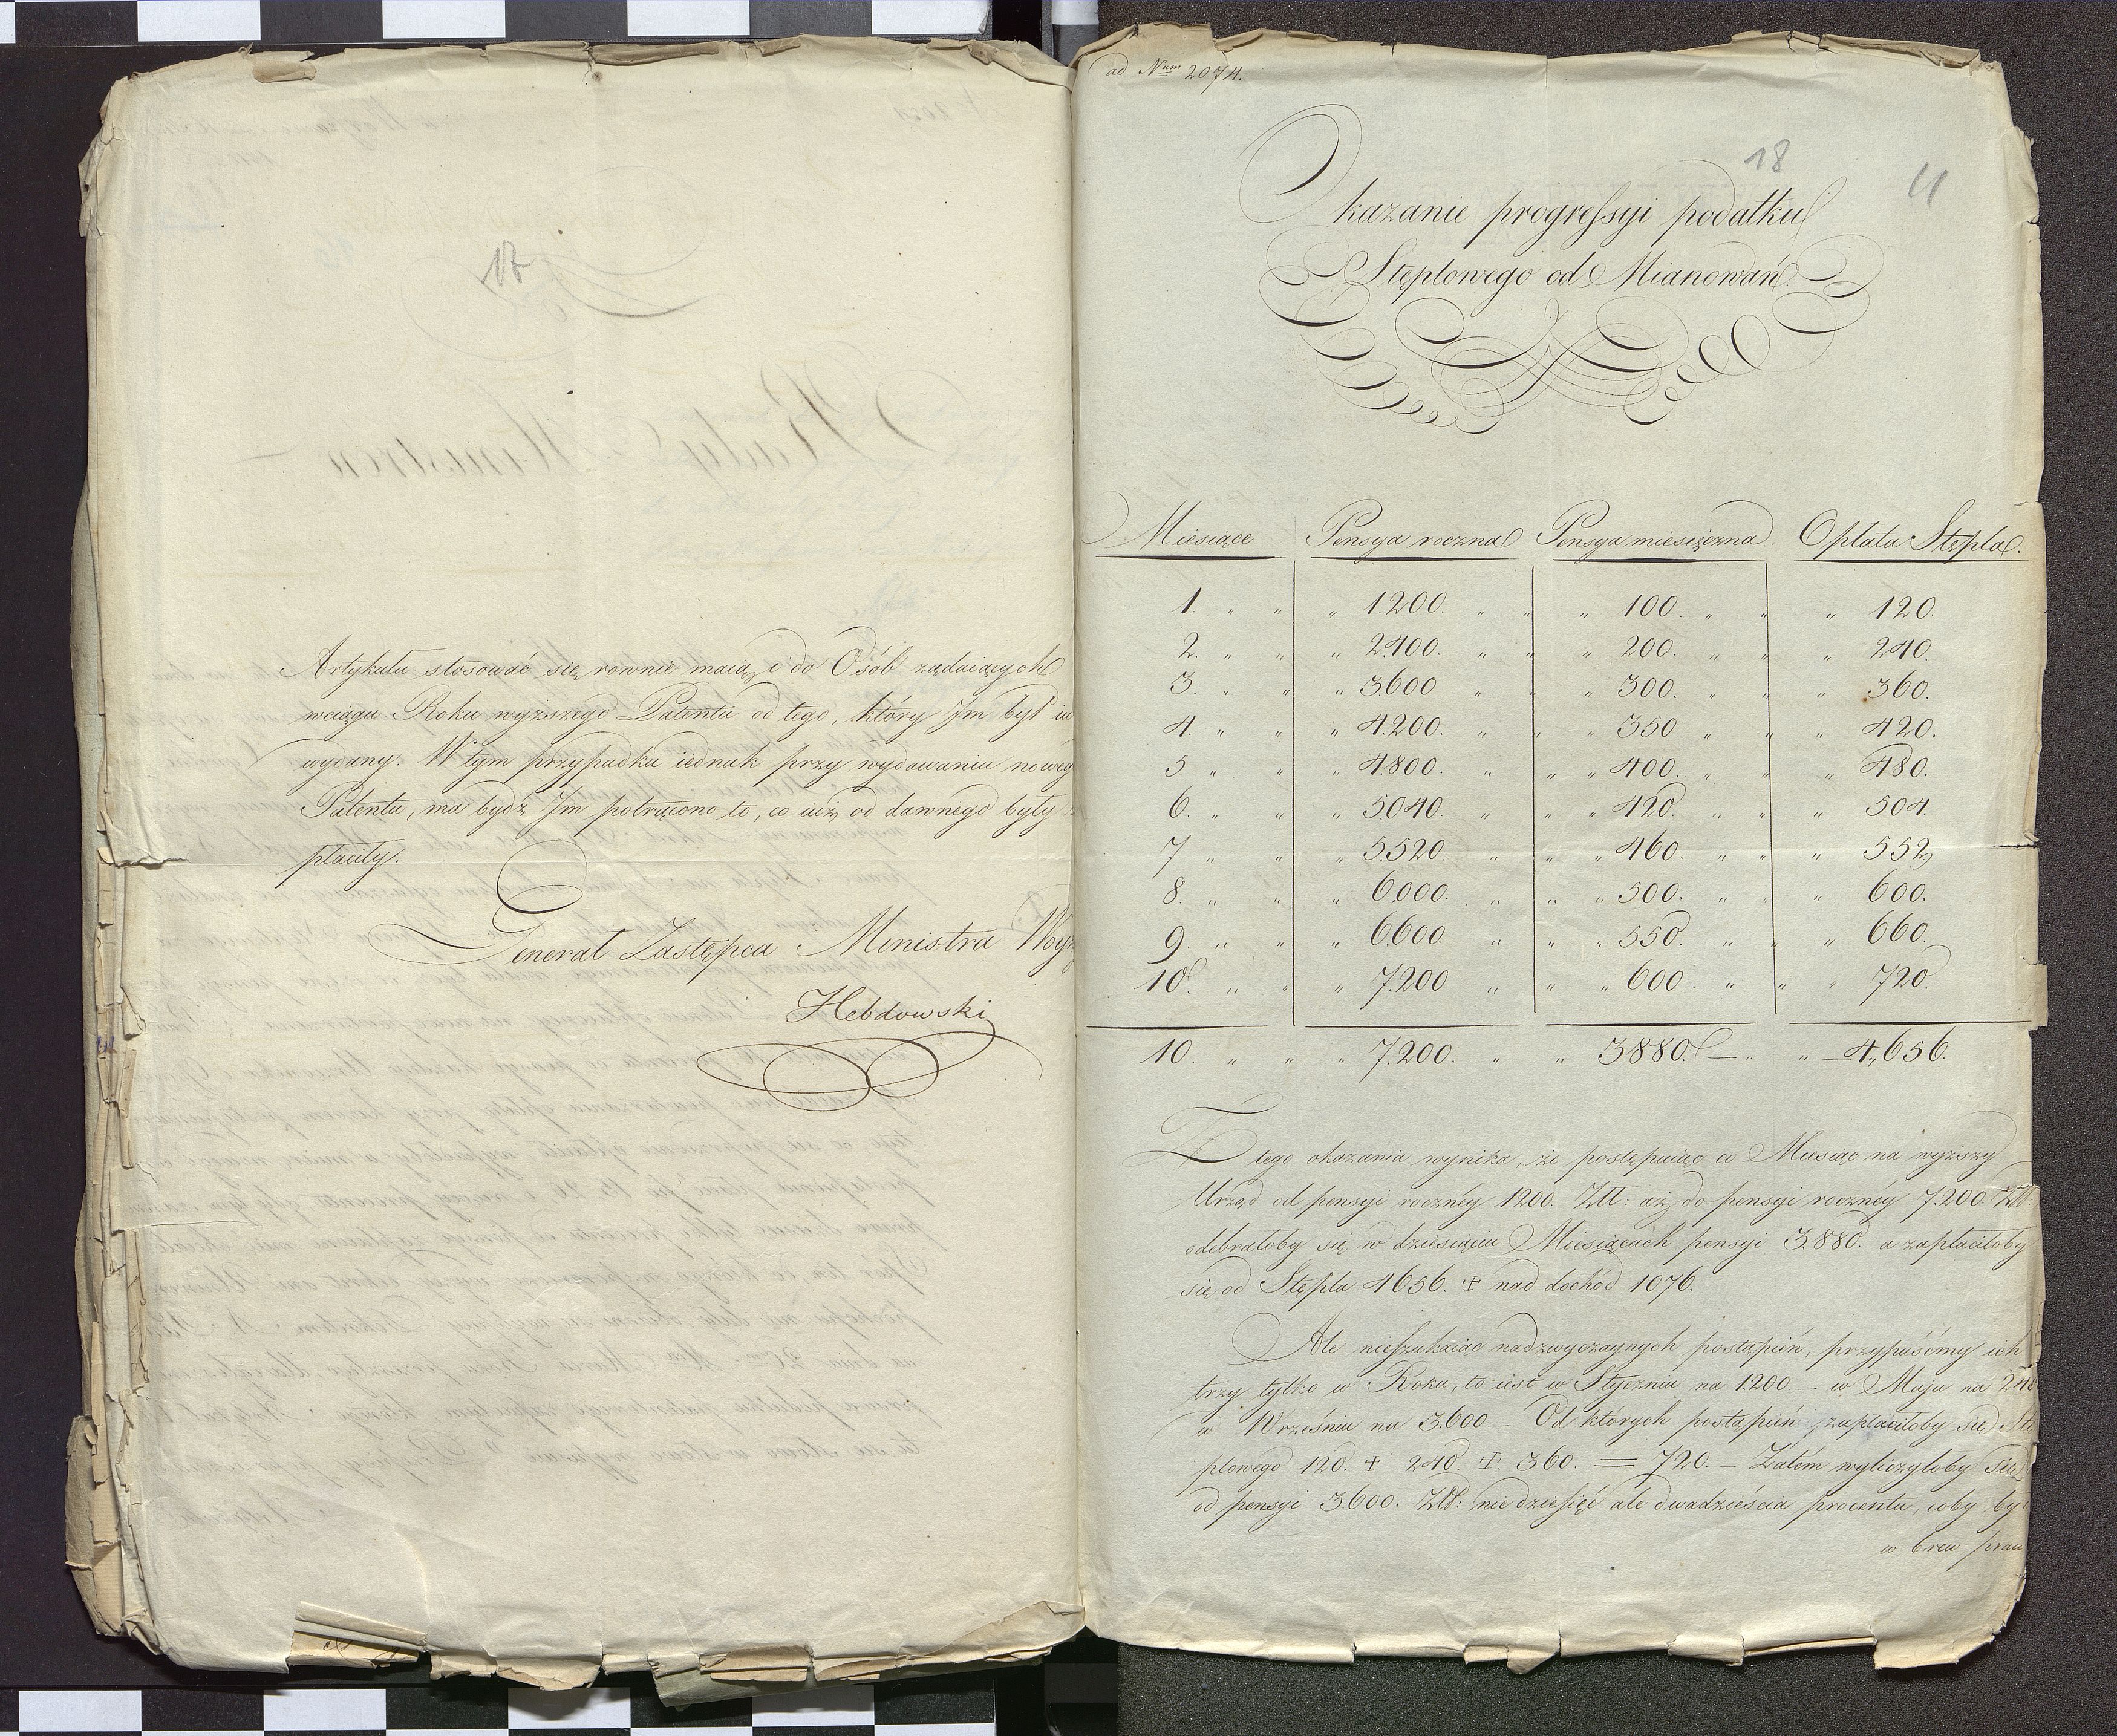 17
Artykułu stosować się rownie maią i do Osób żądaiących
wciągu Roku wyższego Patentu od tego, który Jm był iu
wydany. W tym przypadku iednak przy wydawaniu nowey
Patentu, ma bydź Jm potrącono to, co iuż od dawnego były
płaciły.
Generał Zastępca Ministra Woyn
Hebdowski
ad Num 2074.
18
11
Okazanie progressyi podatku
Stęplowego od Mianowań
Miesiące Pensya roczna Pensya miesięczna. Opłata Stępla.
1. " " " 1.200. " " " 100. " " " 120.
2. " " " 2400. " " " 200. " " " 240.
3. " " " 3.600 " " " 300. " " " 360.
4. " " " 4.200. " " " 350 " " " 420.
5 " " " 4.800. " " " 400. " " " 480.
6. " " " 5.040. " " " 420. " " " 504.
7 " " " 5.520. " " " 460. " " " 552
8. " " " 6.000. " " " 500. " " " 600.
9. " " " 6.600. " " " 550. " " " 660.
10. " " " 7.200 " " " 600. " " " 720.
10. " " " 7.200. " " 3880. — " " 4,656.
Z tego okazania wynika, że postępuiąc co Miesiąc na wyższy
Urząd od pensyi roczney 1200. Złł: aż do pensyi roczney 7.200. Złł
odebrałoby się w dziesiąciu Miesiącach pensyi 3.880. a zapłaciłoby
się od Stępla 4656. + nad dochód 1076.
Ale nieszukaiąc nadzwyczaynych postąpień, przypuśćmy ich
trzy tylko w Roku, to iest w Styczniu na 1.200 — w Maju na 240
w Wrześniu na 3.600. — Od których postąpień zapłaciłoby się Stę
plowego 120. + 240. + 360. = 720. — Zatém wyliczyłoby się
od pensyi 3.600. Złł: nie dziesięć ale dwadzieścia procentu, coby by
w brew praw